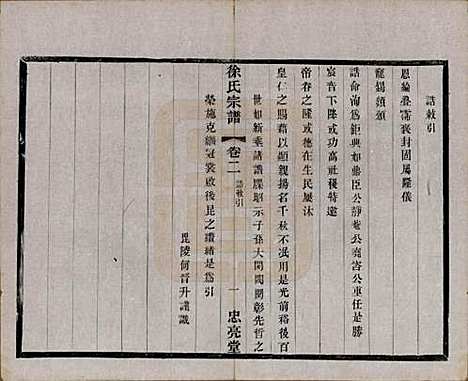 誥敕引
恩綸疊霈袞封固屬隆儀
寵錫頻頒
誥命尚爲鉅典如鼎臣公靜菴公堯咨公車任是勝
宸音下降或功高社稷特邀
帝眷之隆或德在生民屢沐
皇仁之賜藉以顯親揚名千秋不泯用是光前裕後百
世如新乘諸譜牒昭示子孫大閥閱爰彰先哲之
榮施克纘冠裳啟後昆之纘緒是爲引
毘陵何晉升謹識
徐氏宗譜
卷二
誥敕引
一
忠亮堂